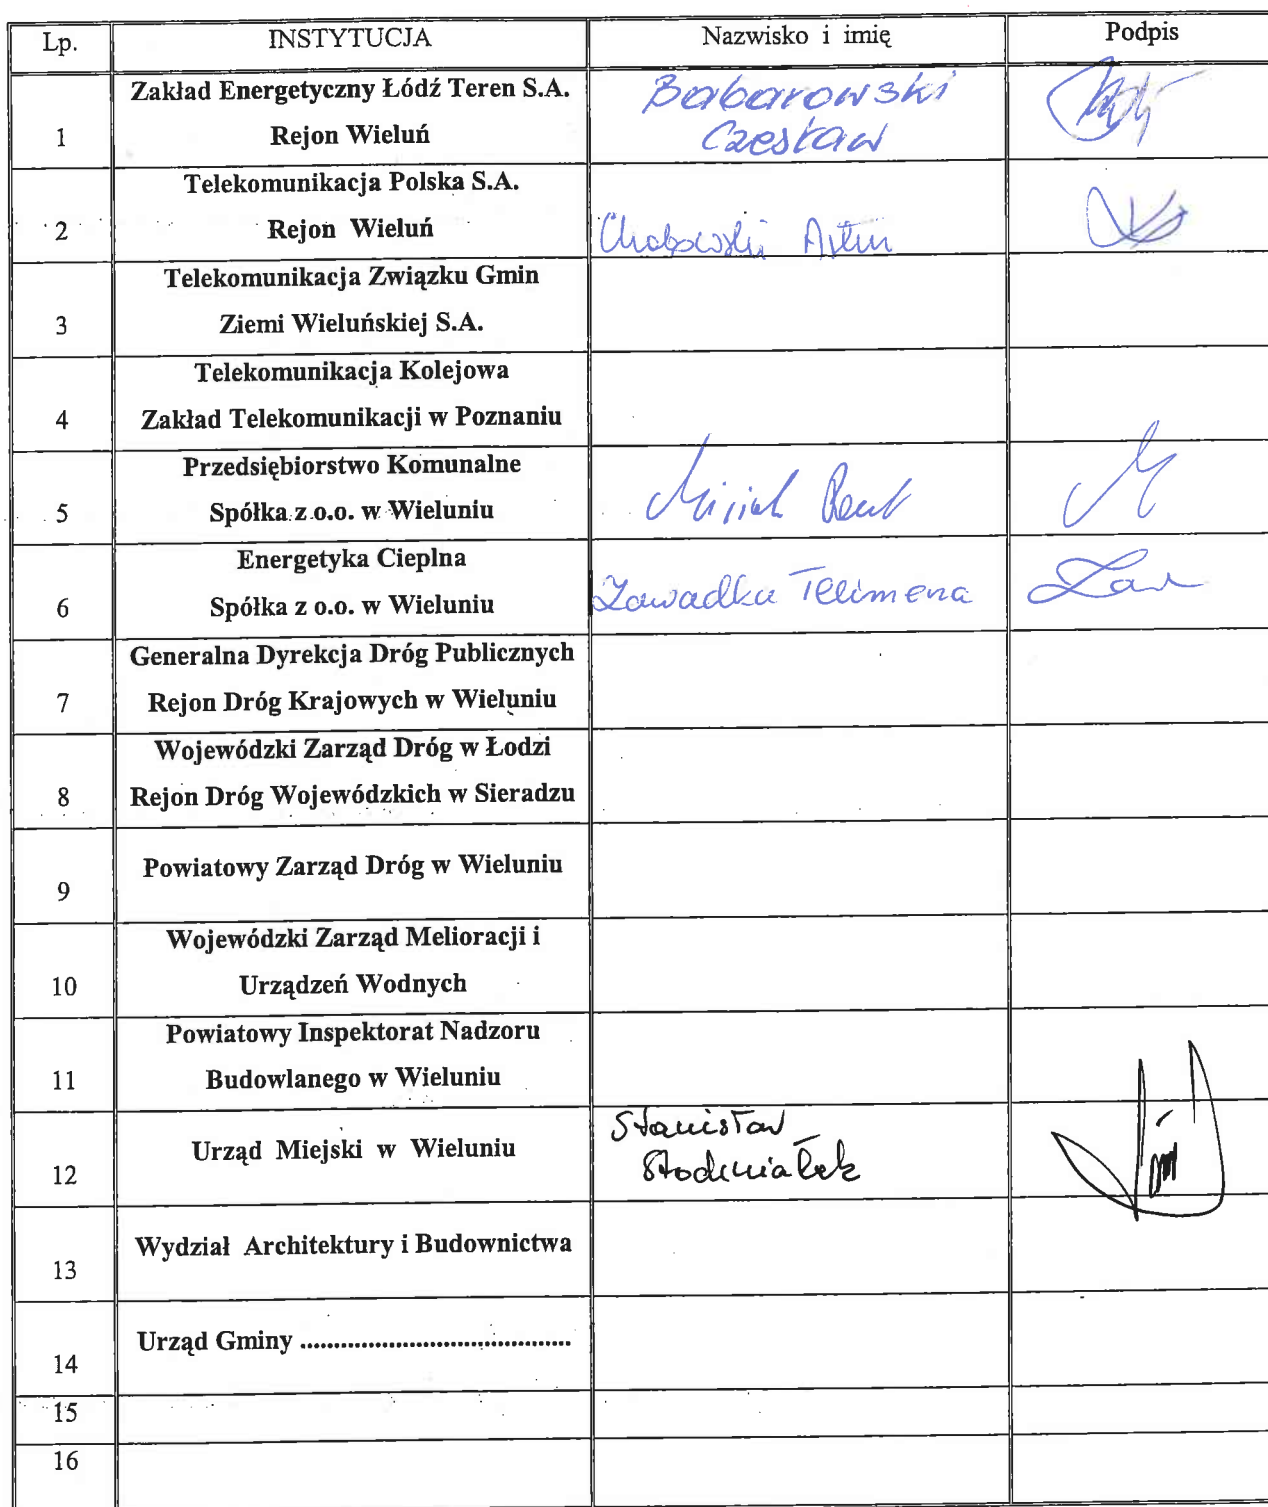 Lp. INSTYTUCJA Nazwisko i imię Podpis
Zakład Energetyczny Łódź Teren S.A. Babarowski
1 Rejon Wieluń Czesław
Telekomunikacja Polska S.A.
2 Rejon Wieluń Chabowski Artur
Telekomunikacja Związku Gmin
3 Ziemi Wieluńskiej S.A.
Telekomunikacja Kolejowa
4 Zakład Telekomunikacji w Poznaniu
Przedsiębiorstwo Komunalne
5 Spółka z o.o. w Wieluniu
Energetyka Cieplna
6 Spółka z o.o. w Wieluniu Zawadka Telimena
Generalna Dyrekcja Dróg Publicznych
7 Rejon Dróg Krajowych w Wieluniu
Wojewódzki Zarząd Dróg w Łodzi
8 Rejon Dróg Wojewódzkich w Sieradzu
Powiatowy Zarząd Dróg w Wieluniu
9
Wojewódzki Zarząd Melioracji i
10 Urządzeń Wodnych
Powiatowy Inspektorat Nadzoru
11 Budowlanego w Wieluniu
Urząd Miejski w Wieluniu Stanisław
12
Wydział Architektury i Budownictwa
13
Urząd Gminy ........................................
14
15
16